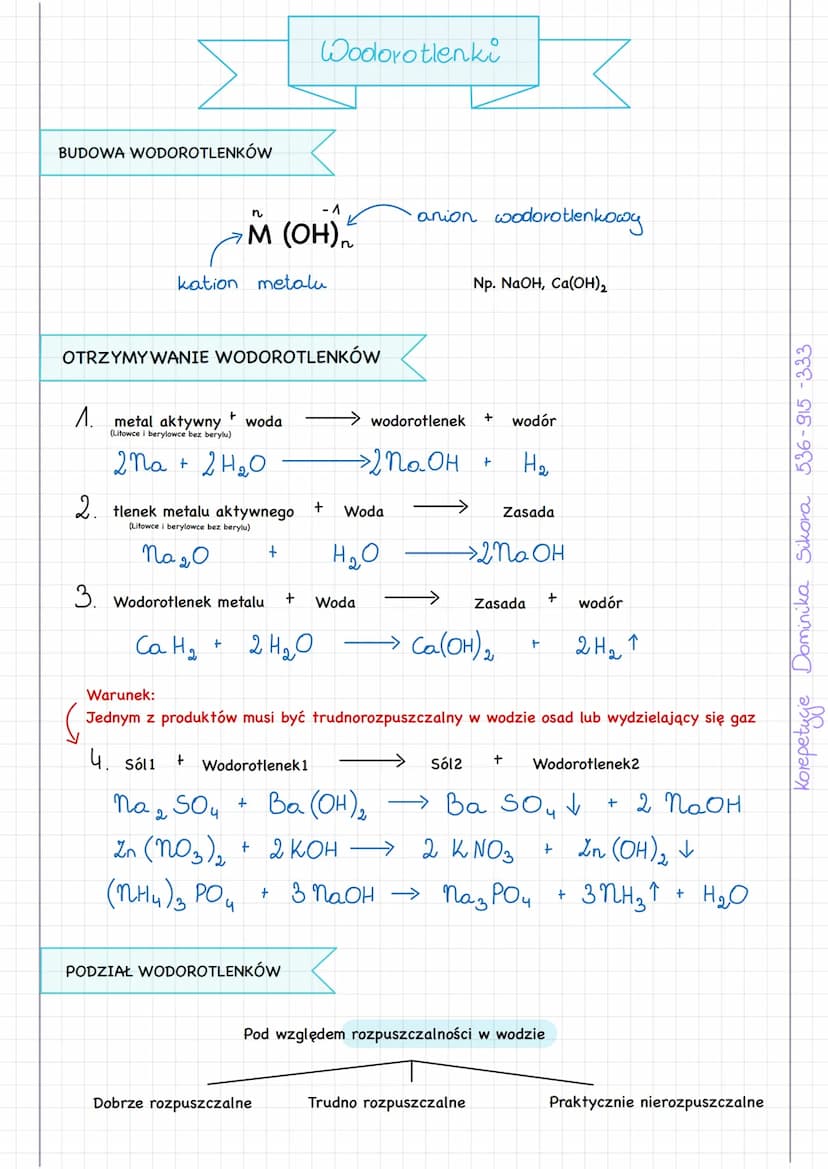 Wodorotlenki
BUDOWA WODOROTLENKÓW
n -1
M (OH)n
anion wodorotlenkowy
kation metalu
Np. NaOH, Ca(OH)₂
OTRZYMYWANIE WODOROTLENKÓW
1. metal aktywny + woda ⟶ wodorotlenek + wodór
(Litowce i berylowce bez berylu)
2Na + 2H₂O ⟶ 2NaOH + H₂
2. tlenek metalu aktywnego + Woda ⟶ Zasada
(Litowce i berylowce bez berylu)
Na₂O + H₂O ⟶ 2NaOH
3. Wodorotlenek metalu + Woda ⟶ Zasada + wodór
CaH₂ + 2H₂O ⟶ Ca(OH)₂ + 2H₂↑
Warunek:
Jednym z produktów musi być trudnorozpuszczalny w wodzie osad lub wydzielający się gaz
4. Sól1 + Wodorotlenek1 ⟶ Sól2 + Wodorotlenek2
Na₂SO₄ + Ba(OH)₂ ⟶ BaSO₄↓ + 2NaOH
Zn(NO₃)₂ + 2KOH ⟶ 2KNO₃ + Zn(OH)₂↓
(NH₄)₃PO₄ + 3NaOH ⟶ Na₃PO₄ + 3NH₃↑ + H₂O
PODZIAŁ WODOROTLENKÓW
Pod względem rozpuszczalności w wodzie
Dobrze rozpuszczalne Trudno rozpuszczalne Praktycznie nierozpuszczalne
Korepetycje Dominika Sikora 536-915-333